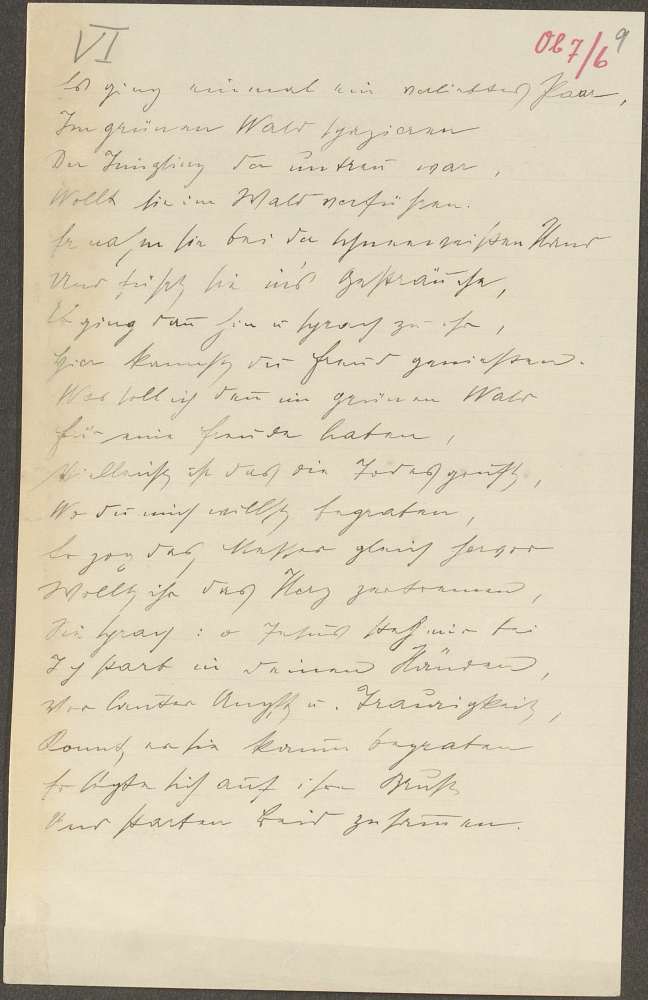 VI
Ob 7/6 9
Es ging einmal ein verliebtes Paar,
Im grünen Wald spazieren
Der Jüngling der untreu war,
Wollt sie im Wald verführen.
Er nahm sie bei der schneeweißen Hand
Und führt sie in's Gesträuche,
Er ging dañ hin u sprach zu ihr,
Hier kannst du Freud genießen.
Was soll ich deñ im grünen Wald
Für eine Freude haben,
Vielleicht ist das die Todesgruft,
Wo du mich willst begraben,
Er zog das Messer gleich hervor
Wollt ihr das Herz zertrennen,
Sie sprach: o Jesus steh mir bei
Ich starb in deinen Händen,
Vor lauter Angst u. Traurigkeit,
Konnt er sie kaum begraben
Er legte sich auf ihre Brust
Und starben beid zusam̄en.